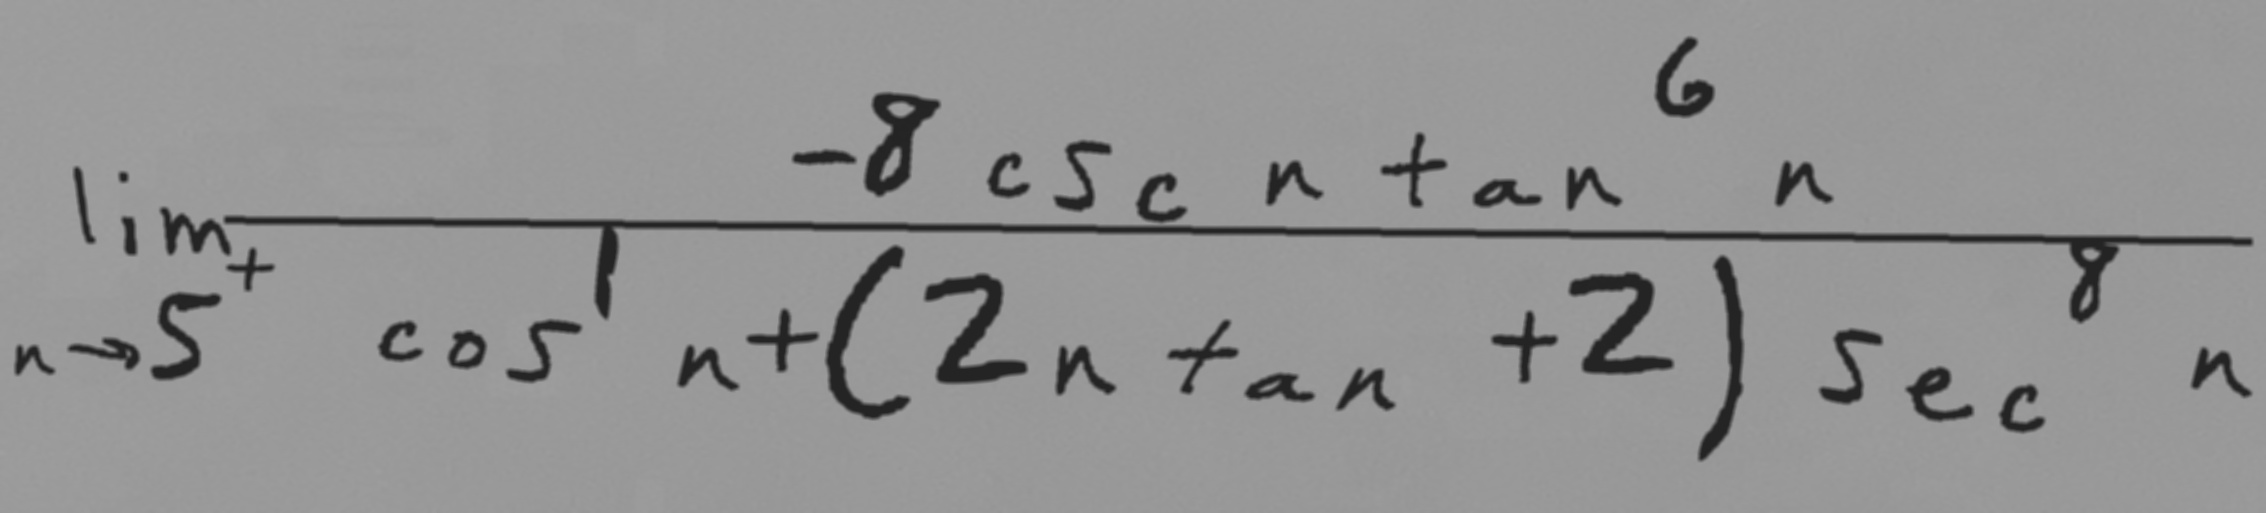 \lim_{n \to 5^{+}} \frac{-8 \csc n \tan^{6} n}{\cos^{1} n + (2n \tan + 2) \sec^{8} n}